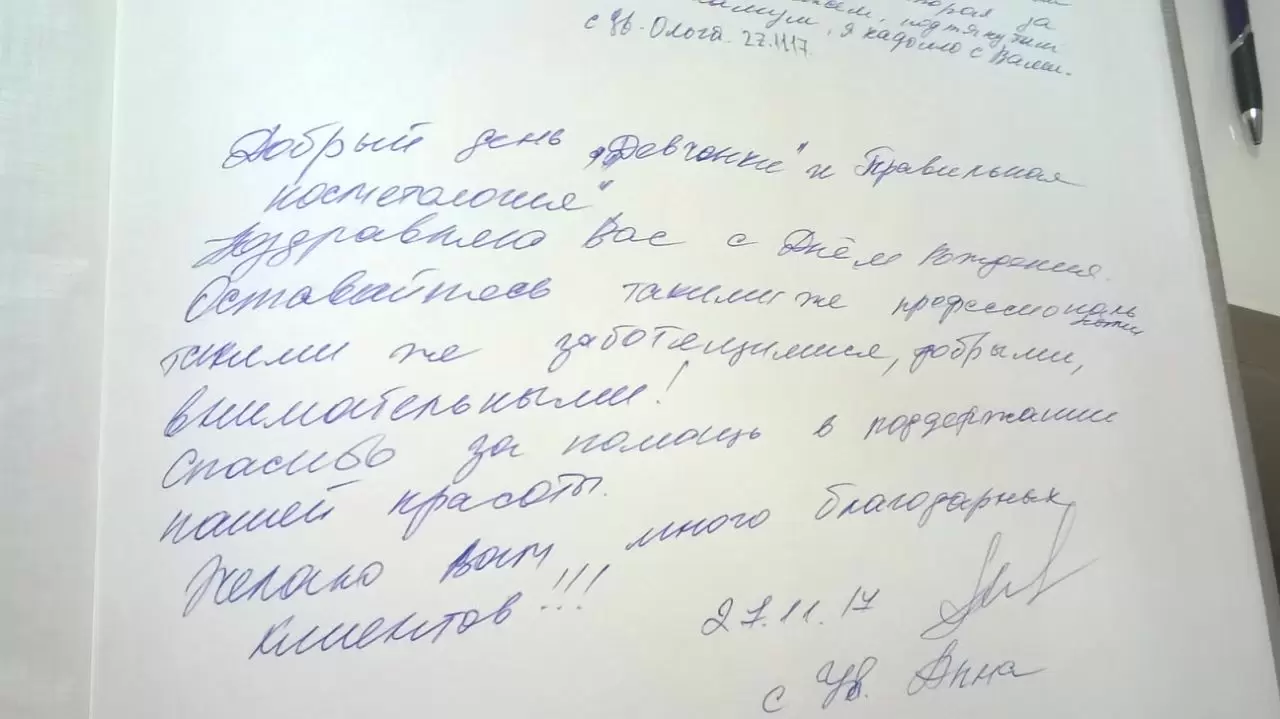 за
подтянутым
, я надолго с Вами.
с Ув. Ольга. 27.11.17
Добрый день „Девчонки" и Правильная
косметология"
Поздравляю Вас с Днём Рождения.
Оставайтесь такими же профессиональ
ными
такими же заботящимися, добрыми,
внимательными!
Спасибо за помощь в поддержании
нашей красоты.
Желаю Вам много благодарных
клиентов!!!
27.11.17
с Ув. Анна